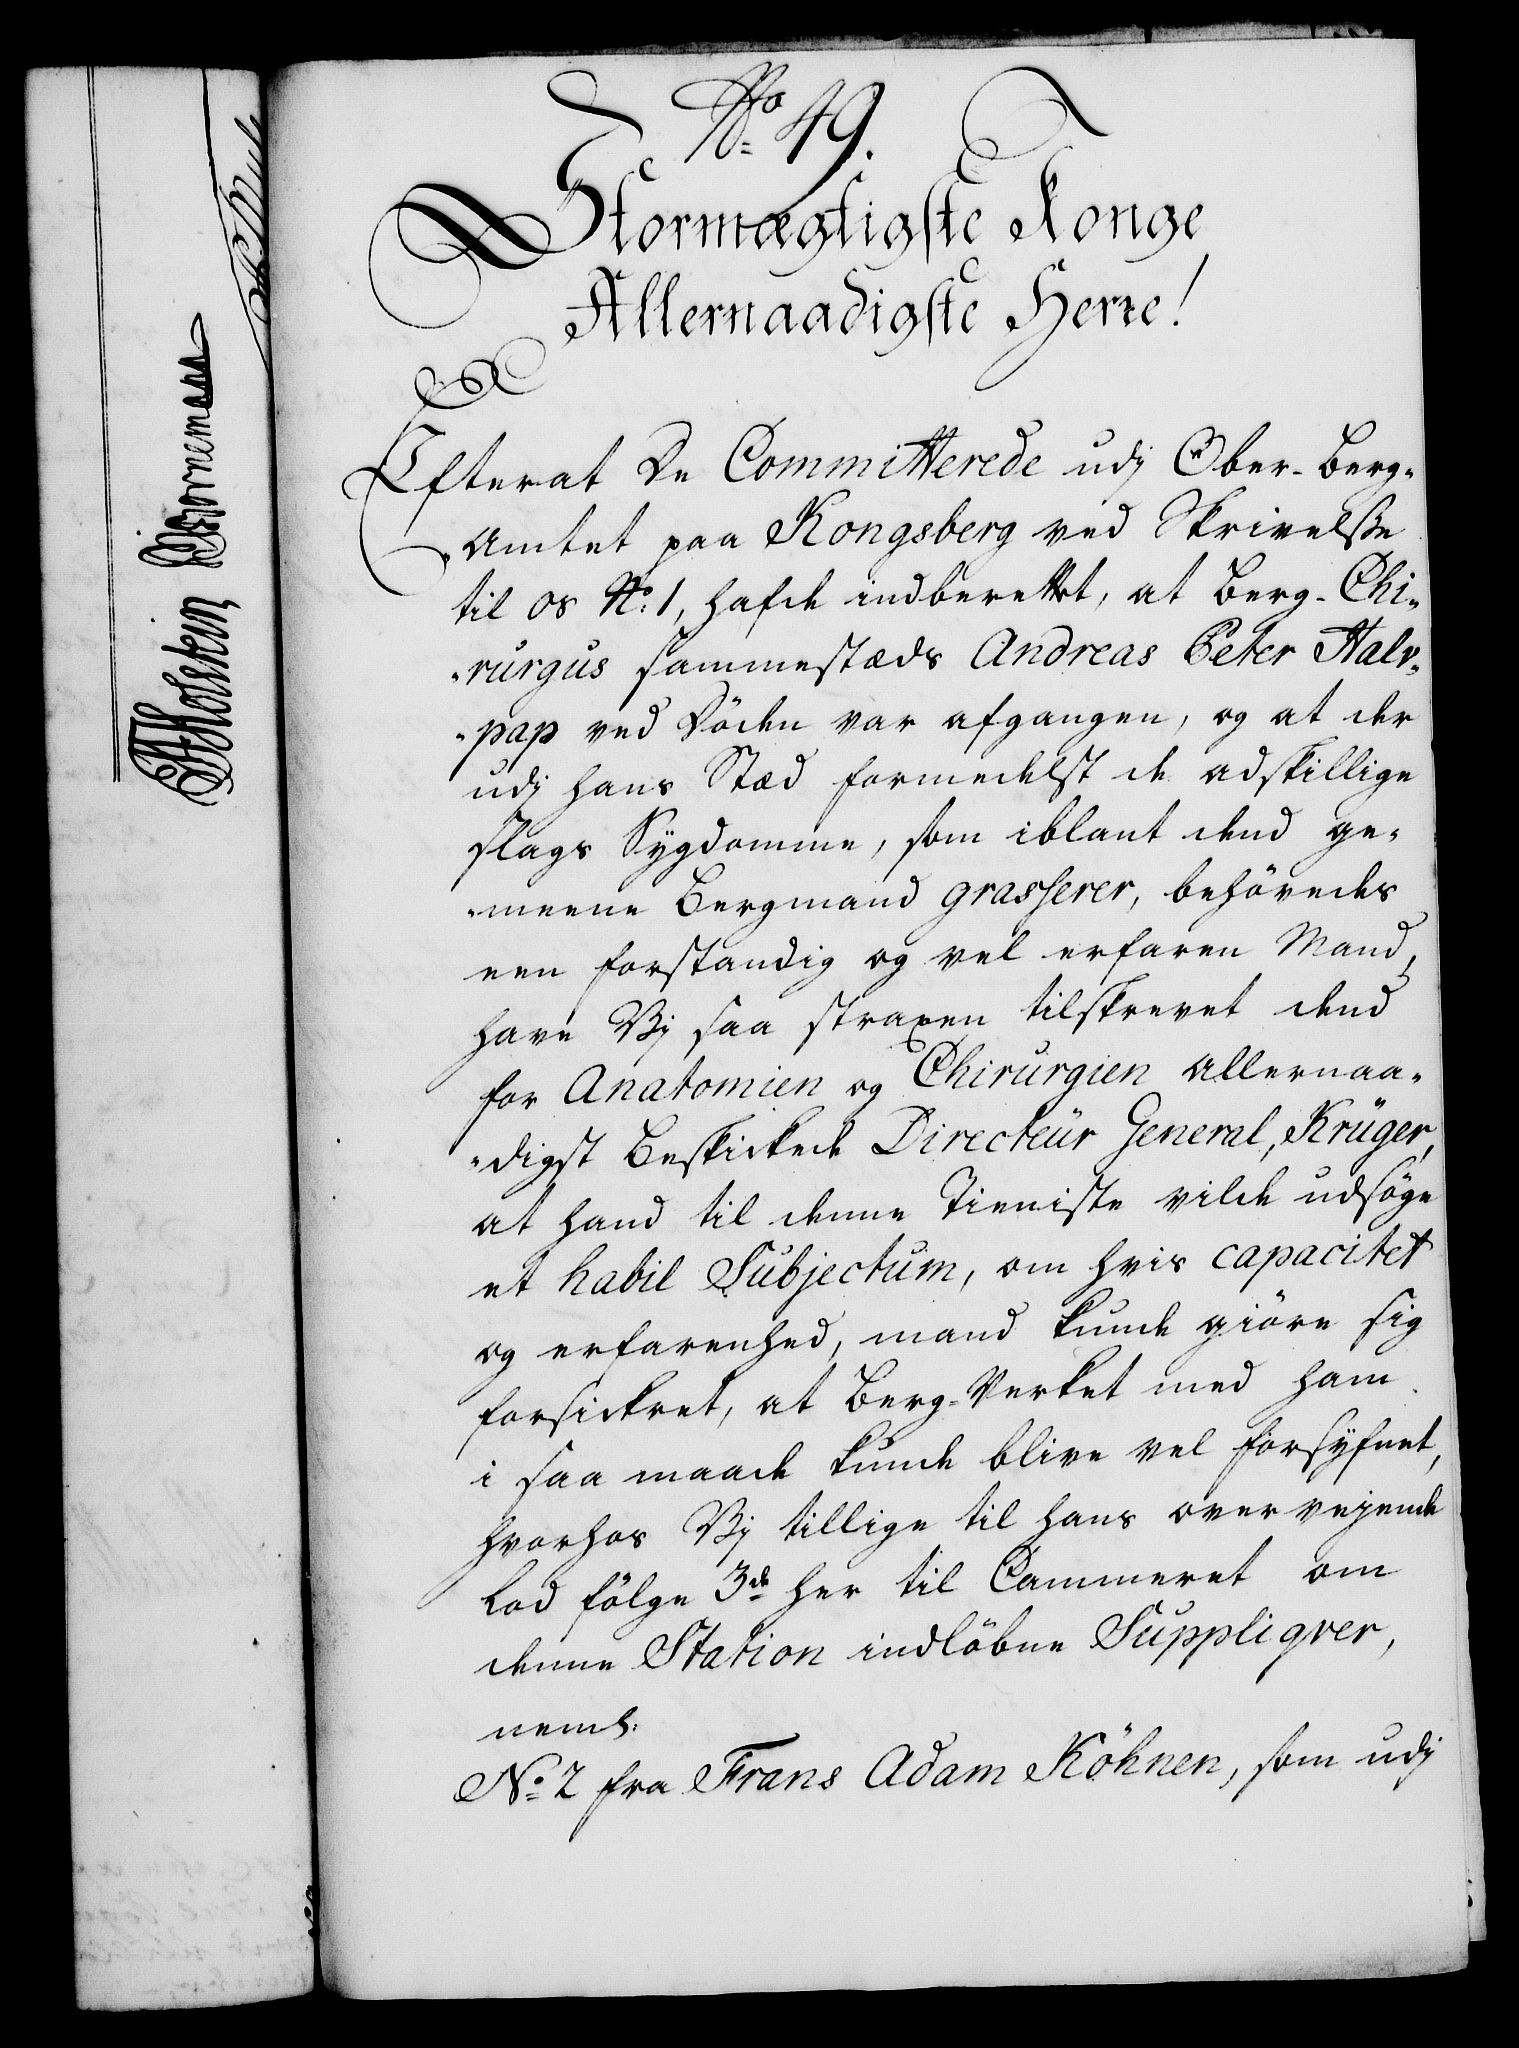 No 49.
Stormægtigste Konge
Allernaadigste Herre!
Efterat De Committerede udj Ober-Berg-
Amtet paa Kongsberg ved Skrivelsse
til os No: 1, hafde indberettet, at Berg-Chi-
rurgus sammestæds Andreas Peter Halv-
pap ved Döden var afgangen, og at der
udj hans Stæd formedelst de adskillige
slags Sygdomme, som iblant dend ge-
meene Bergmand grasserer, behövedes
een forstandig og vel erfaren Mand,
have Vj saa straxen tilskrevet dend
for Anatomien og Chirurgien allernaa-
digst Beskickede Directeur General, Krüger,
at hand til denne Tieniste vilde udsöge
et habil Subjectum, om hvis capacitet
og erfarenhed, mand kunde giöre sig
forsickret, at Berg-Verket med ham
i saa maade kunde blive vel forsÿfnet,
hvorhos Vj tillige til hans overvejende
Lod fölge 3de her til Cammeret om
denne Station indlöbne Suppliqver,
neml:
No 2 fra Frans Adam Köhnen, som udj
Holstein
Bornemann